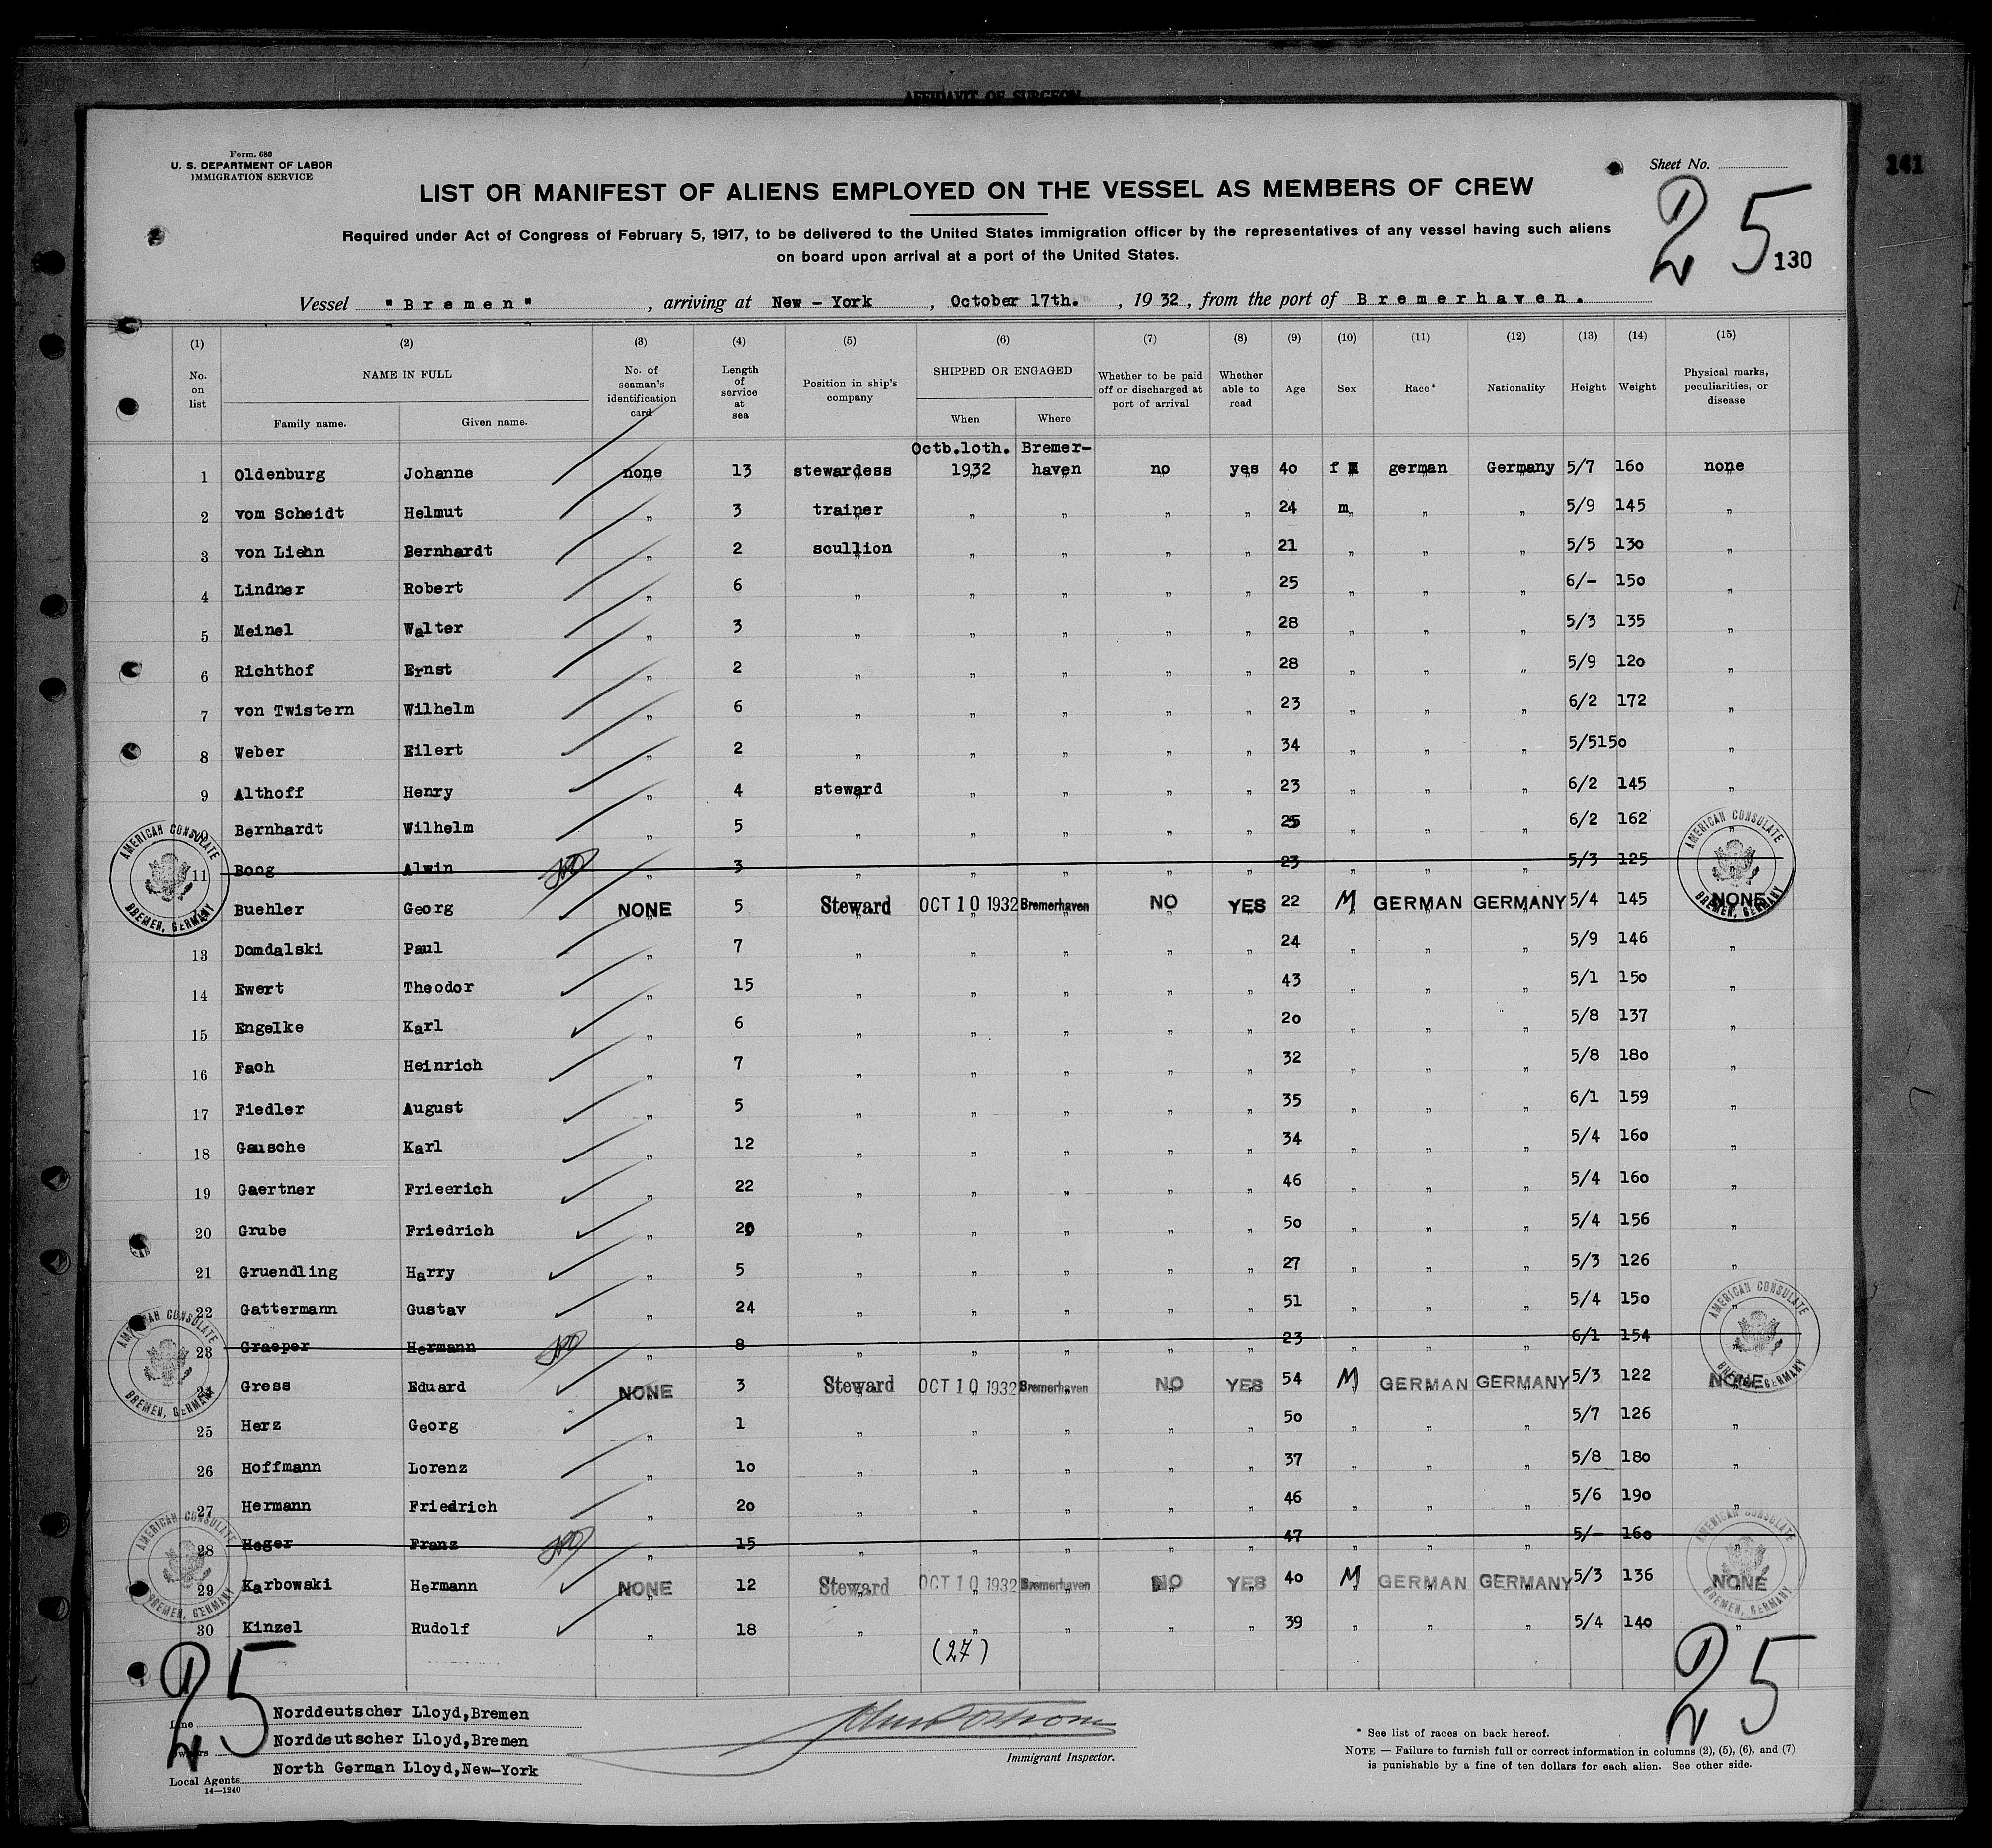 AFFIDAVIT OF SURGEON
141
Form. 680
U. S. DEPARTMENT OF LABOR
IMMIGRATION SERVICE
Sheet No.
25
130
LIST OR MANIFEST OF ALIENS EMPLOYED ON THE VESSEL AS MEMBERS OF CREW
Required under Act of Congress of February 5, 1917, to be delivered to the United States immigration officer by the representatives of any vessel having such aliens
on board upon arrival at a port of the United States.
Vessel "Bremen", arriving at New - York, October 17th., 1932, from the port of Bremerhaven.
(1) (2) (3) (4) (5) (6) (7) (8) (9) (10) (11) (12) (13) (14) (15)
No. on list NAME IN FULL Family name. Given name. No. of seaman's identification card Length of service at sea Position in ship's company SHIPPED OR ENGAGED When Where Whether to be paid off or discharged at port of arrival Whether able to read Age Sex Race* Nationality Height Weight Physical marks, peculiarities, or disease
Octb.1oth. Bremer-
1 Oldenburg Johanne none 13 stewardess 1932 haven no yes 4o f german Germany 5/7 16o none
2 vom Scheidt Helmut " 3 trainer " " " " 24 m " " 5/9 145 "
3 von Liehn Bernhardt " 2 scullion " " " " 21 " " " 5/5 13o "
4 Lindner Robert " 6 " " " " " 25 " " " 6/- 15o "
5 Meinel Walter " 3 " " " " " 28 " " " 5/3 135 "
6 Richthof Ernst " 2 " " " " " 28 " " " 5/9 12o "
7 von Twistern Wilhelm " 6 " " " " " 23 " " " 6/2 172 "
8 Weber Eilert " 2 " " " " " 34 " " " 5/515o "
9 Althoff Henry " 4 steward " " " " 23 " " " 6/2 145 "
10 Bernhardt Wilhelm " 5 " " " " " 25 " " " 6/2 162 "
11 Boog Alwin " 3 " " " " " 23 " " " 5/3 125
Buehler Georg NONE 5 Steward OCT 10 1932 Bremerhaven NO YES 22 M GERMAN GERMANY 5/4 145 NONE
13 Domdalski Paul " 7 " " " " " 24 " " " 5/9 146 "
14 Ewert Theodor " 15 " " " " " 43 " " " 5/1 15o "
15 Engelke Karl " 6 " " " " " 2o " " " 5/8 137 "
16 Fach Heinrich " 7 " " " " " 32 " " " 5/8 18o "
17 Fiedler August " 5 " " " " " 35 " " " 6/1 159 "
18 Gausche Karl " 12 " " " " " 34 " " " 5/4 16o "
19 Gaertner Frieerich " 22 " " " " " 46 " " " 5/4 16o "
20 Grube Friedrich " 20 " " " " " 5o " " " 5/4 156 "
21 Gruendling Harry " 5 " " " " " 27 " " " 5/3 126 "
22 Gattermann Gustav " 24 " " " " " 51 " " " 5/4 15o "
23 Graeper Hermann " 8 " " " " " 23 " " " 6/1 154
24 Gress Eduard NONE 3 Steward OCT 10 1932 Bremerhaven NO YES 54 M GERMAN GERMANY 5/3 122 NONE
25 Herz Georg " 1 " " " " " 5o " " " 5/7 126 "
26 Hoffmann Lorenz " 1o " " " " " 37 " " " 5/8 18o "
27 Hermann Friedrich " 2o " " " " " 46 " " " 5/6 19o "
28 Heger Franz " 15 " " " " " 47 " " " 5/- 16o "
29 Karbowski Hermann NONE 12 Steward OCT 10 1932 Bremerhaven NO YES 4o M GERMAN GERMANY 5/3 136 NONE
30 Kinzel Rudolf " 18 " " " " " 39 " " " 5/4 14o "
(27)
AMERICAN CONSULATE BREMEN, GERMANY
AMERICAN CONSULATE BREMEN, GERMANY
AMERICAN CONSULATE BREMEN, GERMANY
AMERICAN CONSULATE BREMEN, GERMANY
AMERICAN CONSULATE BREMEN, GERMANY
AMERICAN CONSULATE BREMEN, GERMANY
25
25
Line Norddeutscher Lloyd,Bremen
Owners Norddeutscher Lloyd,Bremen
Local Agents North German Lloyd,New-York
14—1240
Immigrant Inspector.
* See list of races on back hereof.
NOTE — Failure to furnish full or correct information in columns (2), (5), (6), and (7)
is punishable by a fine of ten dollars for each alien. See other side.